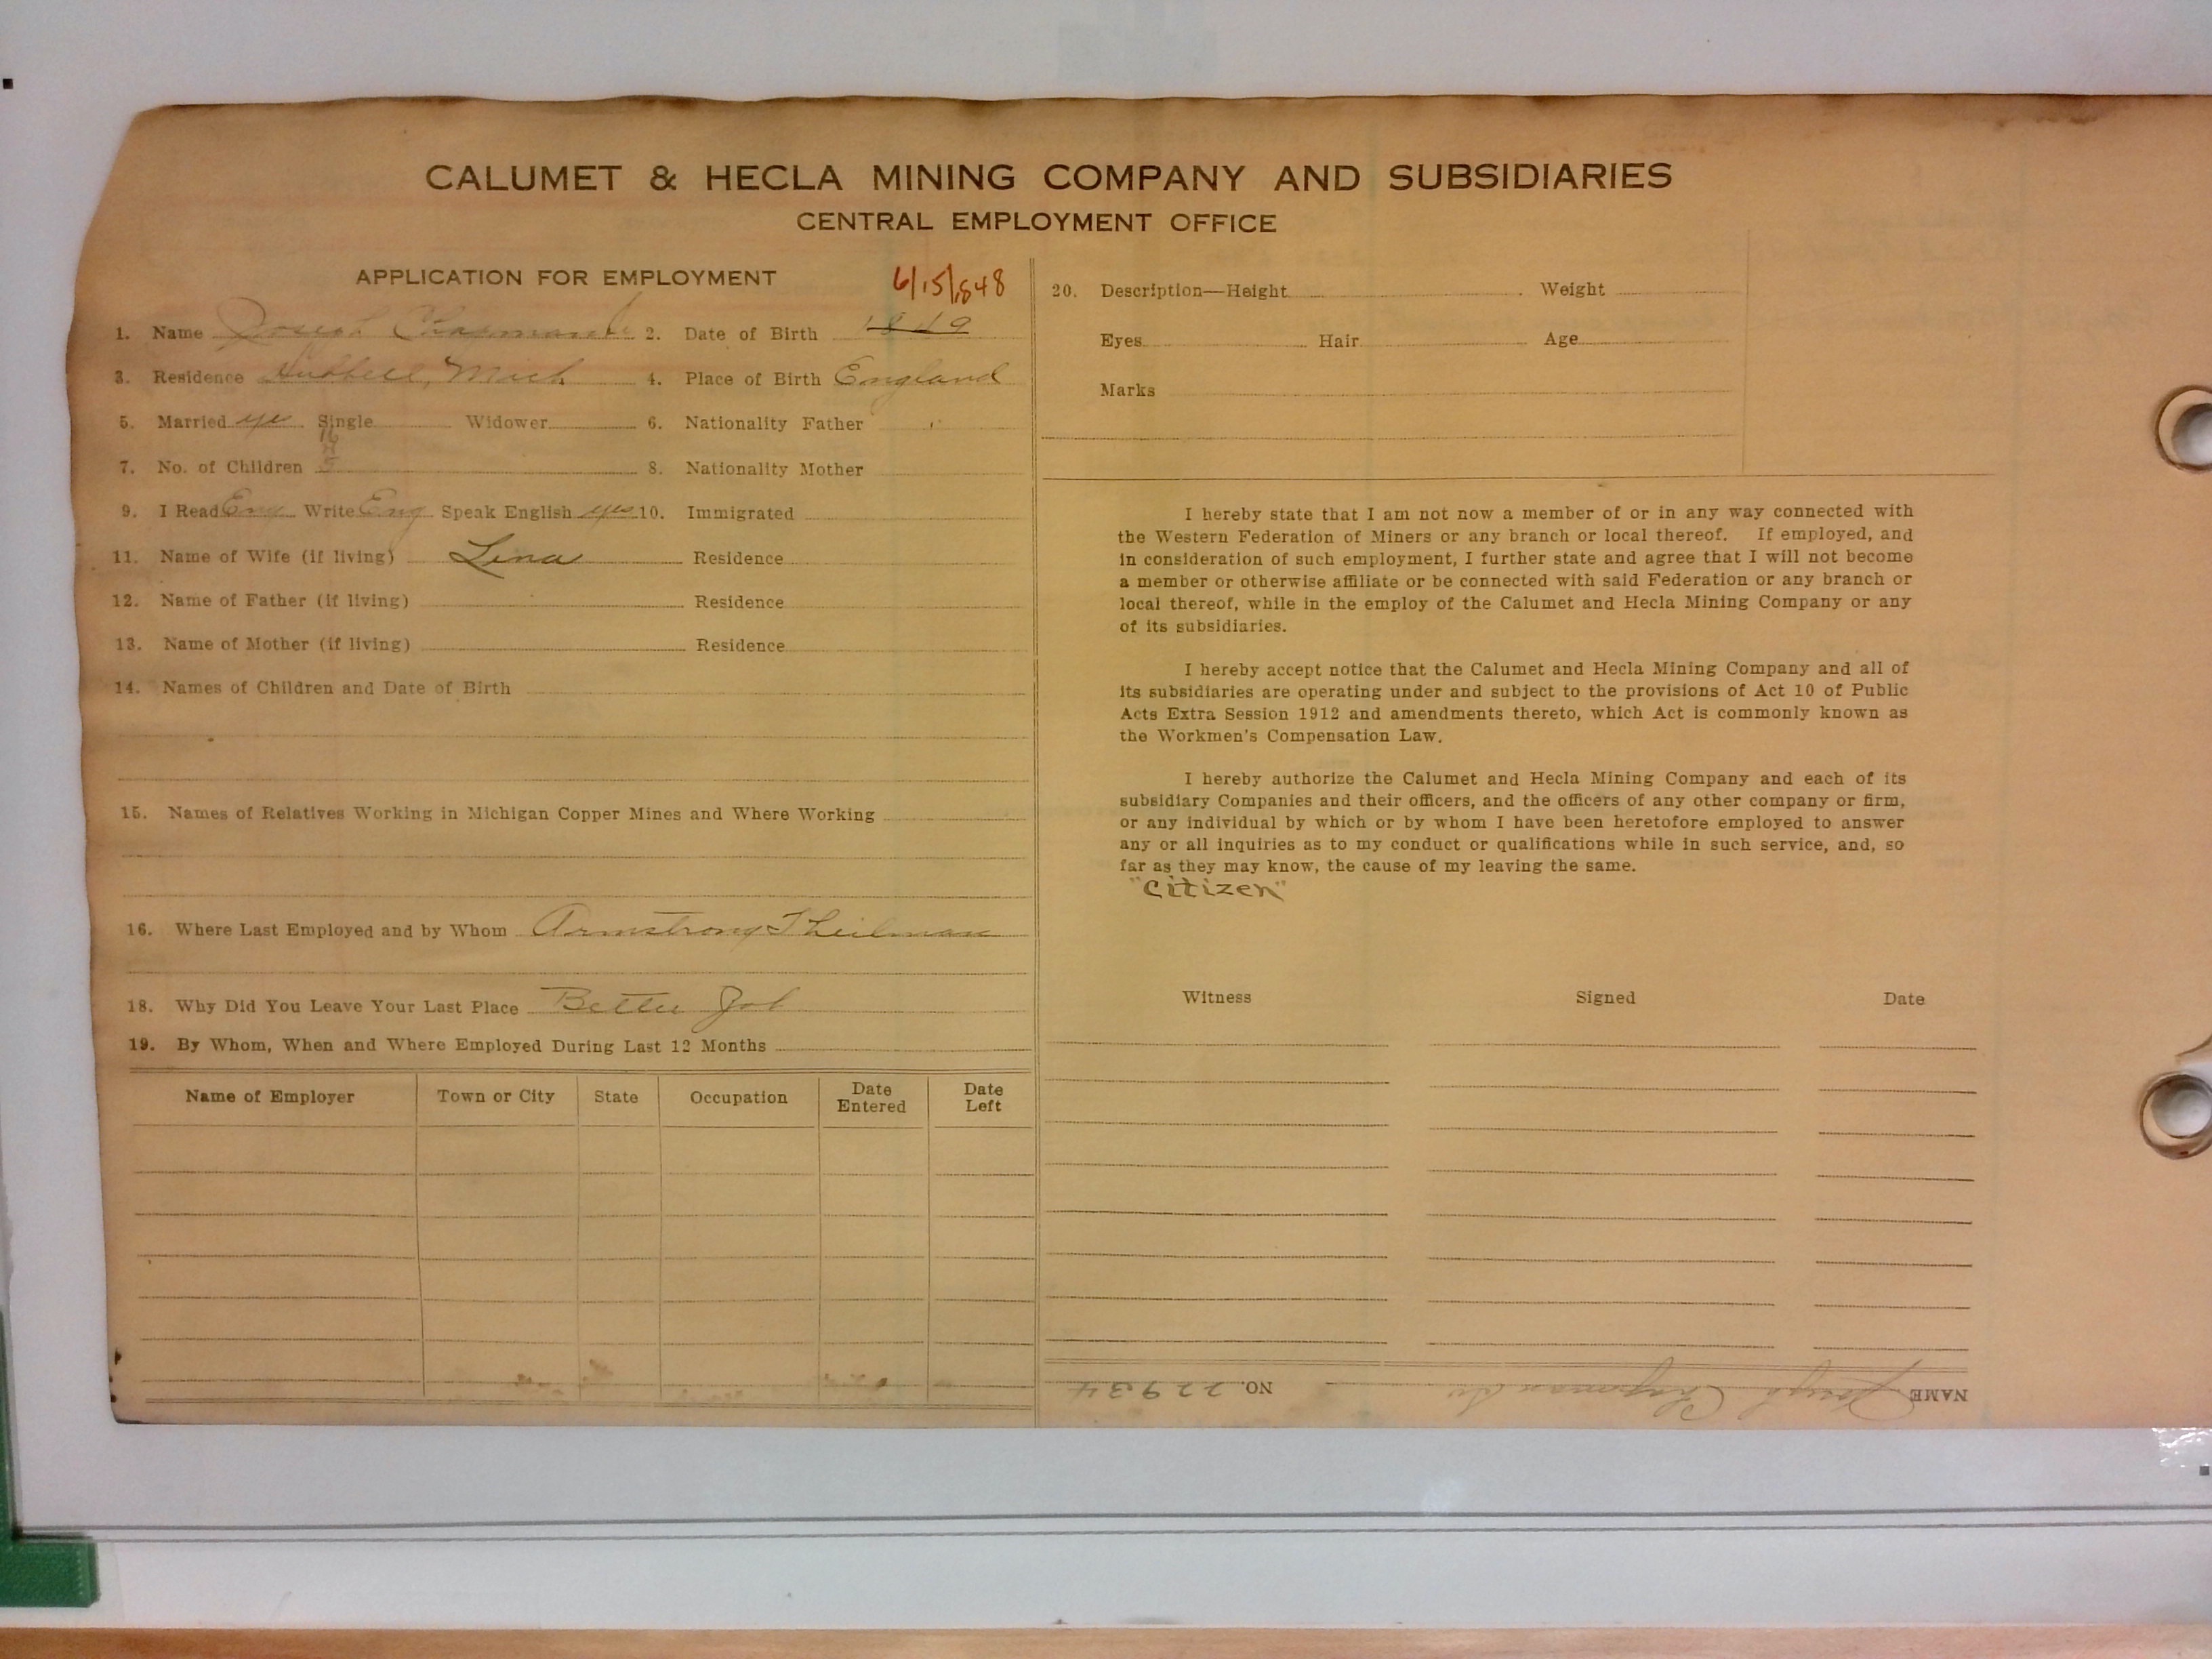 CALUMET & HECLA MINING COMPANY AND SUBSIDIARIES
CENTRAL EMPLOYMENT OFFICE
APPLICATION FOR EMPLOYMENT
6/15/1848
1. Name Joseph Chapman 2. Date of Birth 1849
3. Residence Hubbell, Mich 4. Place of Birth England
5. Married yes Single Widower 6. Nationality Father
7. No. of Children 8. Nationality Mother
9. I Read Eng Write Eng Speak English yes 10. Immigrated
11. Name of Wife (if living) Lena Residence
12. Name of Father (if living) Residence
13. Name of Mother (if living) Residence
14. Names of Children and Date of Birth
15. Names of Relatives Working in Michigan Copper Mines and Where Working
16. Where Last Employed and by Whom Armstrong Theilman
18. Why Did You Leave Your Last Place Better Job
19. By Whom, When and Where Employed During Last 12 Months
Name of Employer Town or City State Occupation Date Entered Date Left
20. Description—Height Weight
Eyes Hair Age
Marks
I hereby state that I am not now a member of or in any way connected with
the Western Federation of Miners or any branch or local thereof. If employed, and
in consideration of such employment, I further state and agree that I will not become
a member or otherwise affiliate or be connected with said Federation or any branch or
local thereof, while in the employ of the Calumet and Hecla Mining Company or any
of its subsidiaries.
I hereby accept notice that the Calumet and Hecla Mining Company and all of
its subsidiaries are operating under and subject to the provisions of Act 10 of Public
Acts Extra Session 1912 and amendments thereto, which Act is commonly known as
the Workmen's Compensation Law.
I hereby authorize the Calumet and Hecla Mining Company and each of its
subsidiary Companies and their officers, and the officers of any other company or firm,
or any individual by which or by whom I have been heretofore employed to answer
any or all inquiries as to my conduct or qualifications while in such service, and, so
far as they may know, the cause of my leaving the same.
"Citizen"
Witness Signed Date
NAME Joseph Chapman Sr NO. 22934